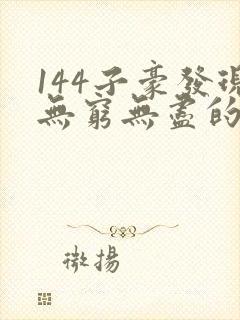 144子豪發現
無窮無盡的
微揚